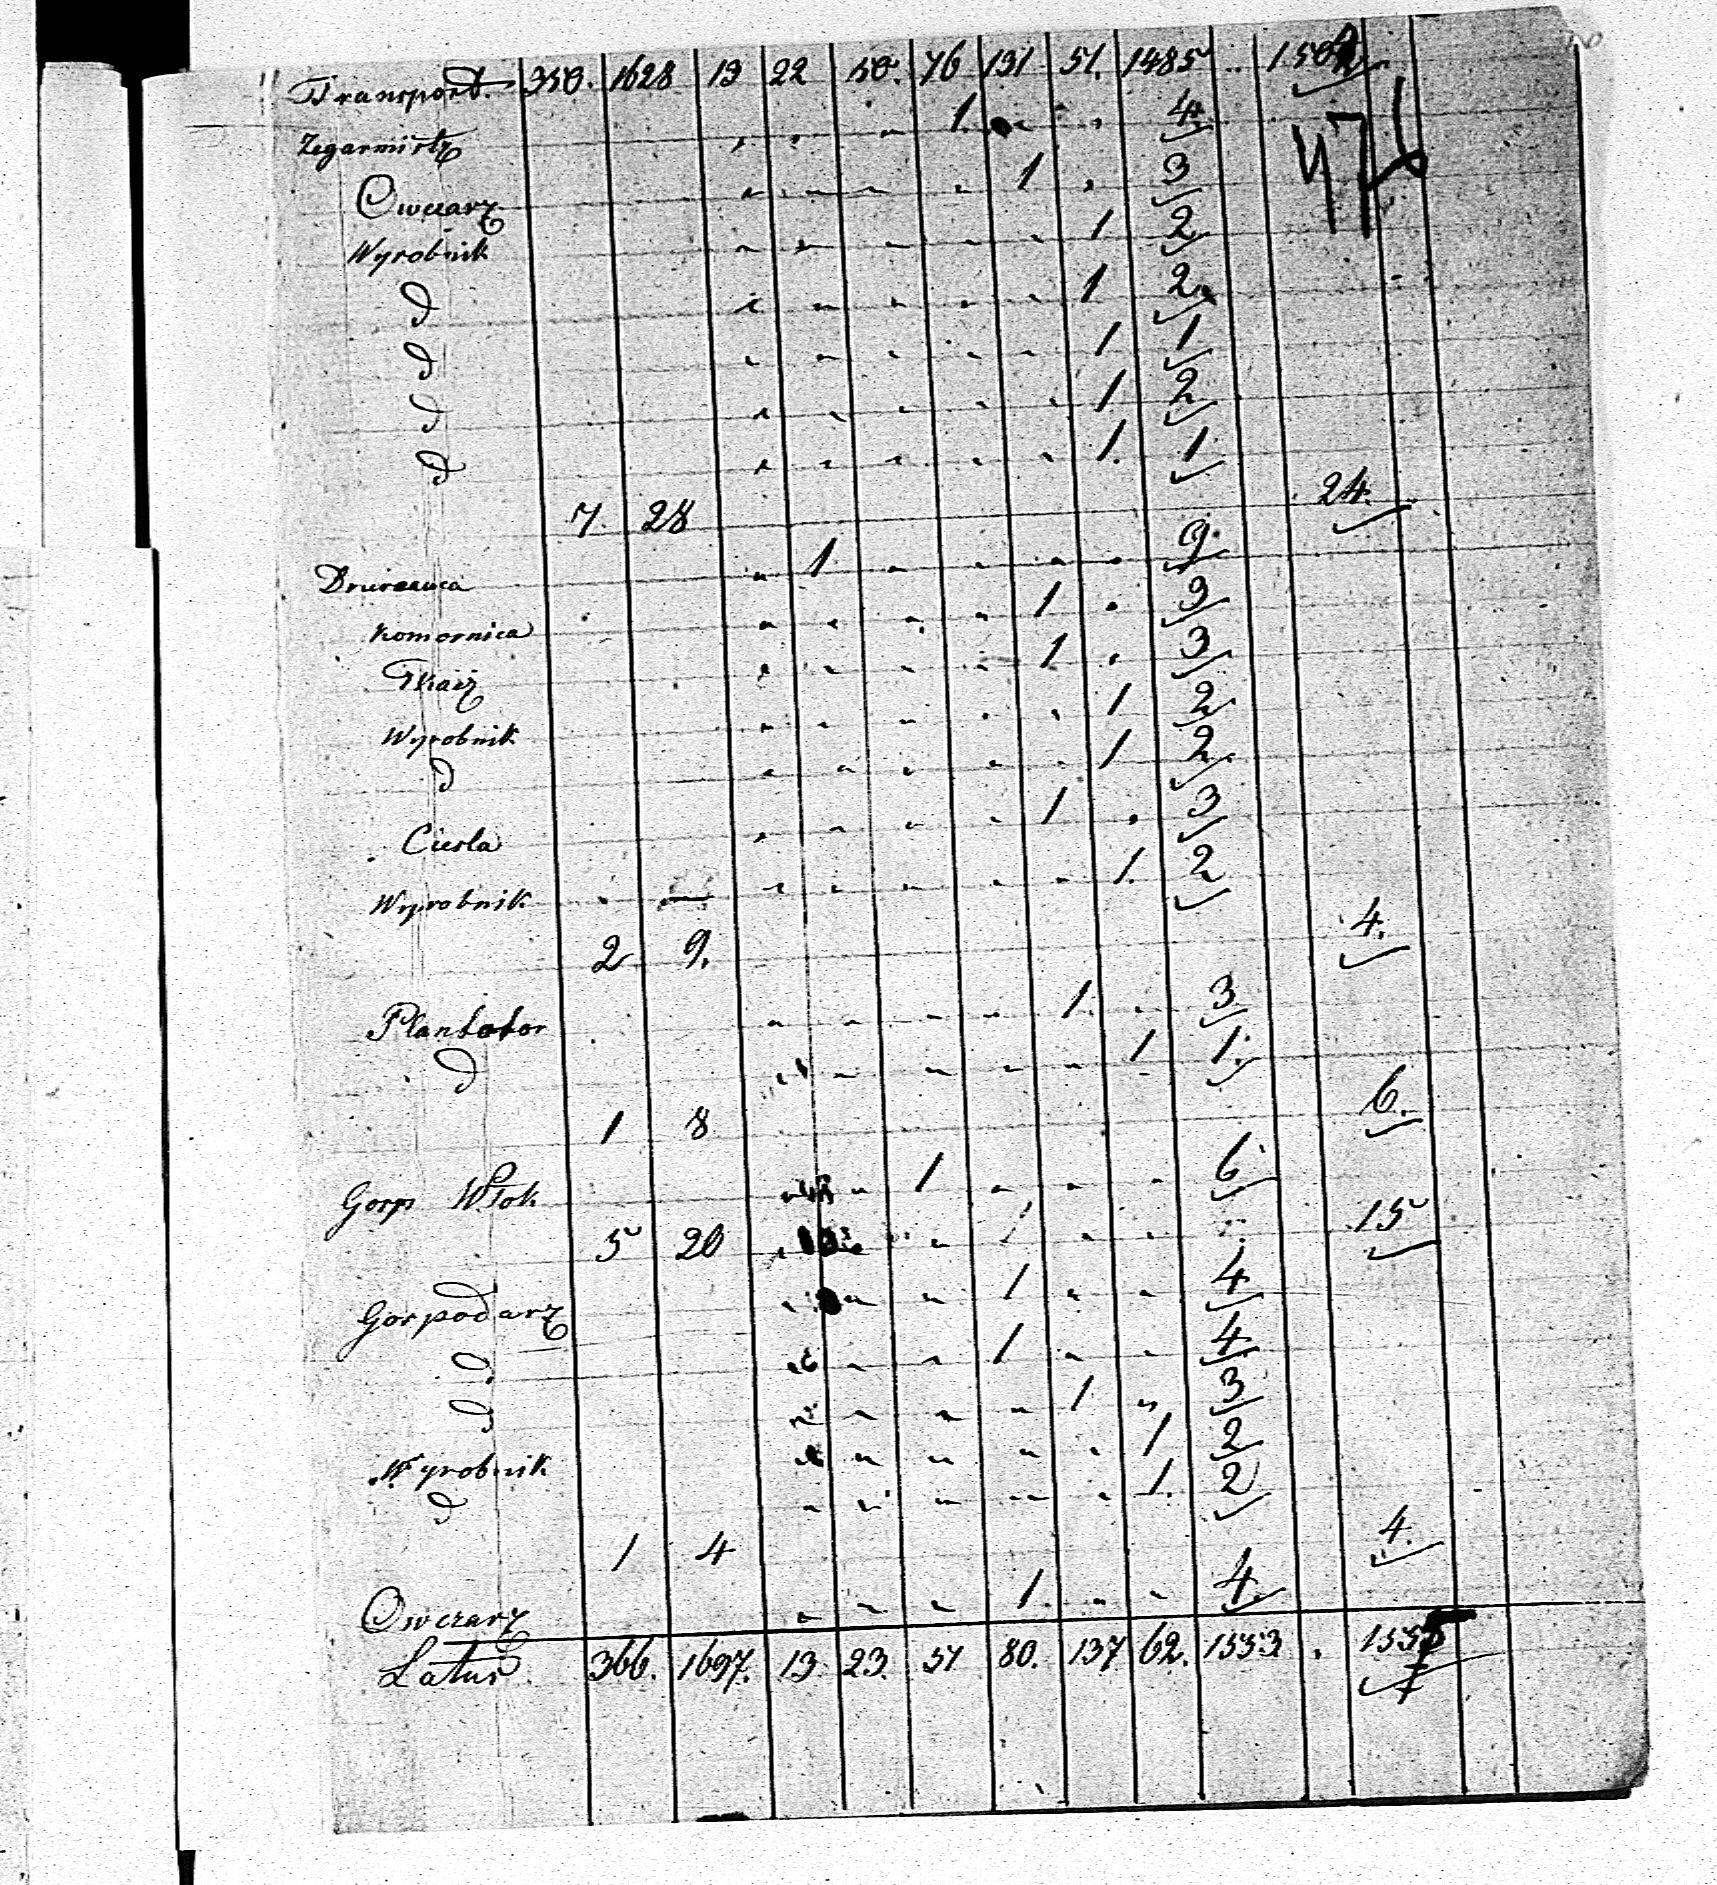 Transport. 350. 1628 13 22 50. 76 131 51. 1485 " 150
476
Zegarmistrz " " " 1. " " 4.
Owczarz " " " " 1 " 3
Wyrobnik " " " " " 1 2
d " " " " " 1 2
d " " " " " 1 1
d " " " " " 1 2
d " " " " " 1. 1
7. 28 24.
" 1 " " " " 9.
Komornica " " " " 1 " 3
Tkacz " " " " 1 " 3
Wyrobnik " " " " " 1 2
d " " " " " 1 2
Ciesla " " " " 1 " 3
Wyrobnik " " " " " 1. 2
2 9. 4.
Plantator " " " " 1. " 3
d " " " " " 1 1.
1 8 6.
Gosp Włok " " 1 " " " 6
5 20 15
Gospodarz " " " 1 " " 4
d " " " 1 " " 4
d " " " " 1 " 3
Wyrobnik " " " " " 1 2
d " " " " " 1. 2
1 4 4.
Owczarz " " " 1. " " 4.
Latus 366. 1697. 13 23. 51 80. 137 62. 1553 . 1555